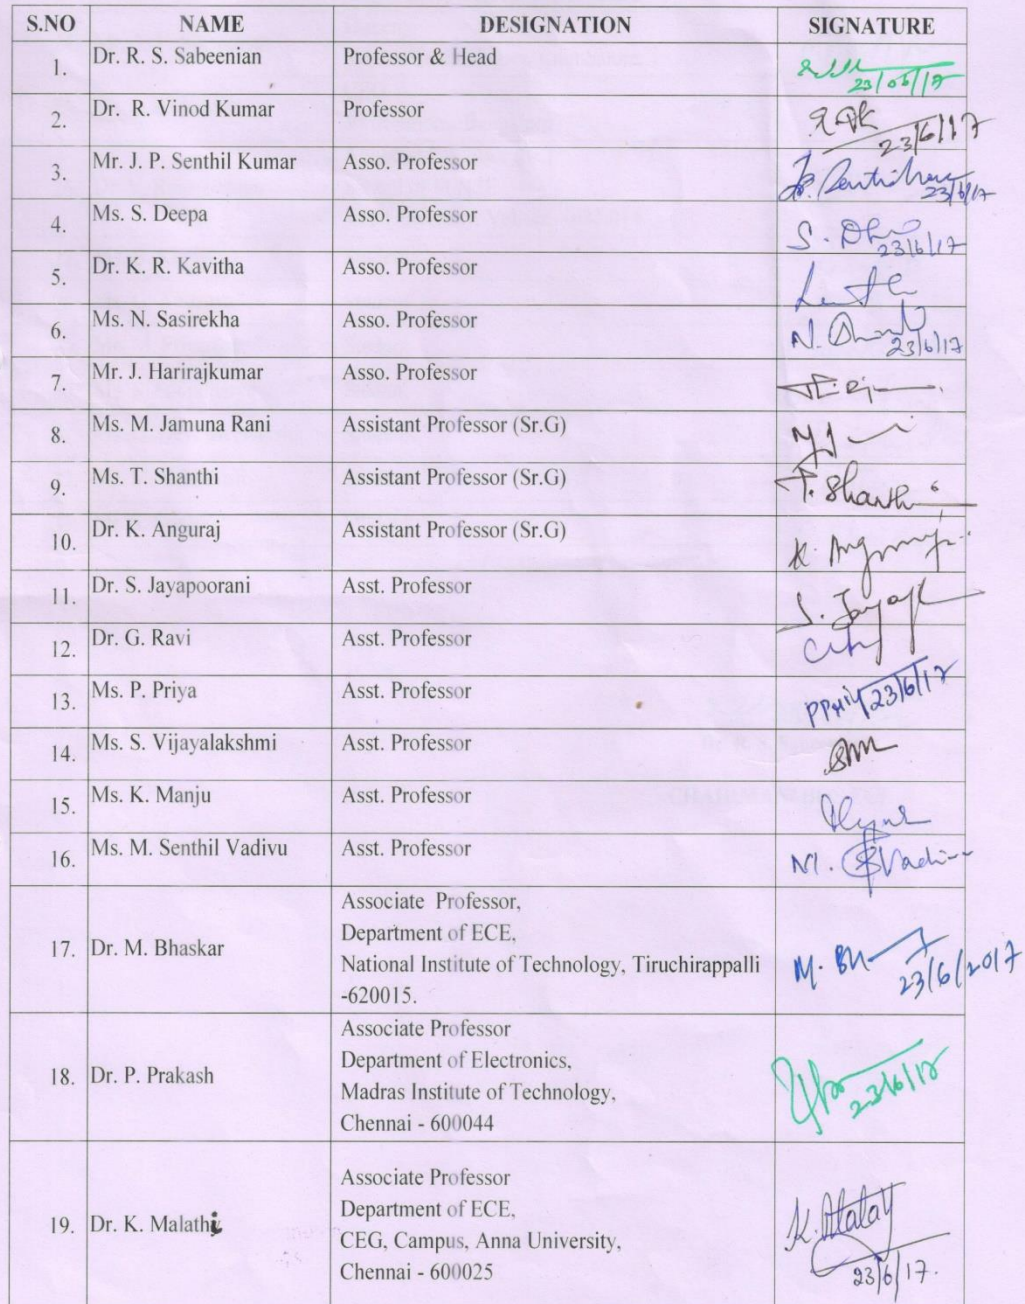 S.NO NAME DESIGNATION SIGNATURE
1. Dr. R. S. Sabeenian Professor & Head
23/06/17
2. Dr. R. Vinod Kumar Professor
23/6/17
3. Mr. J. P. Senthil Kumar Asso. Professor
23/6/17
4. Ms. S. Deepa Asso. Professor S.
23/6/17
5. Dr. K. R. Kavitha Asso. Professor
6. Ms. N. Sasirekha Asso. Professor N.
23/6/17
7. Mr. J. Harirajkumar Asso. Professor
8. Ms. M. Jamuna Rani Assistant Professor (Sr.G)
9. Ms. T. Shanthi Assistant Professor (Sr.G) T. Shanthi
10. Dr. K. Anguraj Assistant Professor (Sr.G) K.
11. Dr. S. Jayapoorani Asst. Professor S.
12. Dr. G. Ravi Asst. Professor
13. Ms. P. Priya Asst. Professor 23/6/17
14. Ms. S. Vijayalakshmi Asst. Professor
15. Ms. K. Manju Asst. Professor
16. Ms. M. Senthil Vadivu Asst. Professor M.
Associate Professor,
Department of ECE,
17. Dr. M. Bhaskar National Institute of Technology, Tiruchirappalli M.
-620015. 23/6/2017
Associate Professor
Department of Electronics,
18. Dr. P. Prakash Madras Institute of Technology, 23/6/17
Chennai - 600044
Associate Professor
Department of ECE,
19. Dr. K. Malathi CEG, Campus, Anna University, K.
Chennai - 600025 23/6/17.